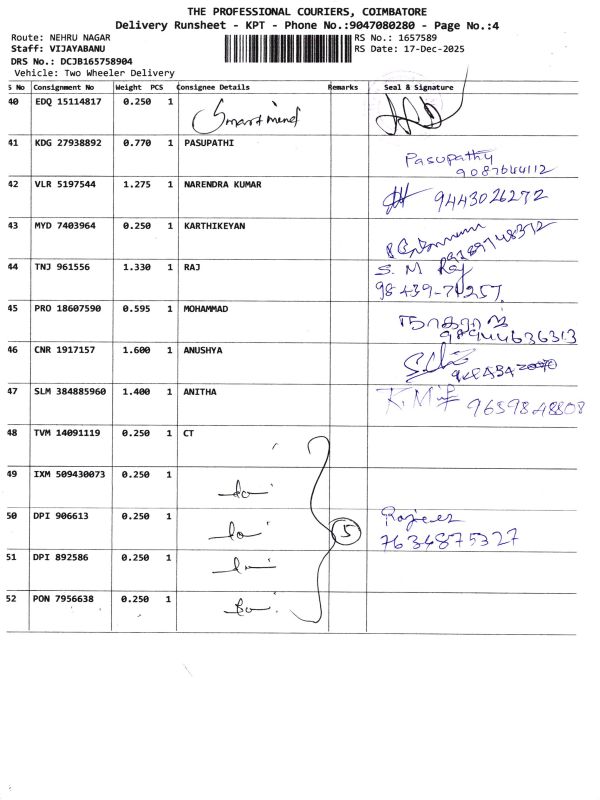 THE PROFESSIONAL COURIERS, COIMBATORE
Delivery Runsheet - KPT - Phone No.:9047080280 - Page No.:4
Route: NEHRU NAGAR RS No.: 1657589
Staff: VIJAYABANU RS Date: 17-Dec-2025
DRS No.: DCJB165758904
Vehicle: Two Wheeler Delivery
S No Consignment No Weight PCS Consignee Details Remarks Seal & Signature
40 EDQ 15114817 0.250 1 Smartmind
41 KDG 27938892 0.770 1 PASUPATHI Pasupathy
9087644112
42 VLR 5197544 1.275 1 NARENDRA KUMAR 9443026272
43 MYD 7403964 0.250 1 KARTHIKEYAN
44 TNJ 961556 1.330 1 RAJ S. M Raj
98439-74257
45 PRO 18607590 0.595 1 MOHAMMAD
46 CNR 1917157 1.600 1 ANUSHYA
47 SLM 384885960 1.400 1 ANITHA 9659848808
48 TVM 14091119 0.250 1 CT
49 IXM 509430073 0.250 1
50 DPI 906613 0.250 1 5
7634875327
51 DPI 892586 0.250 1
52 PON 7956638 0.250 1